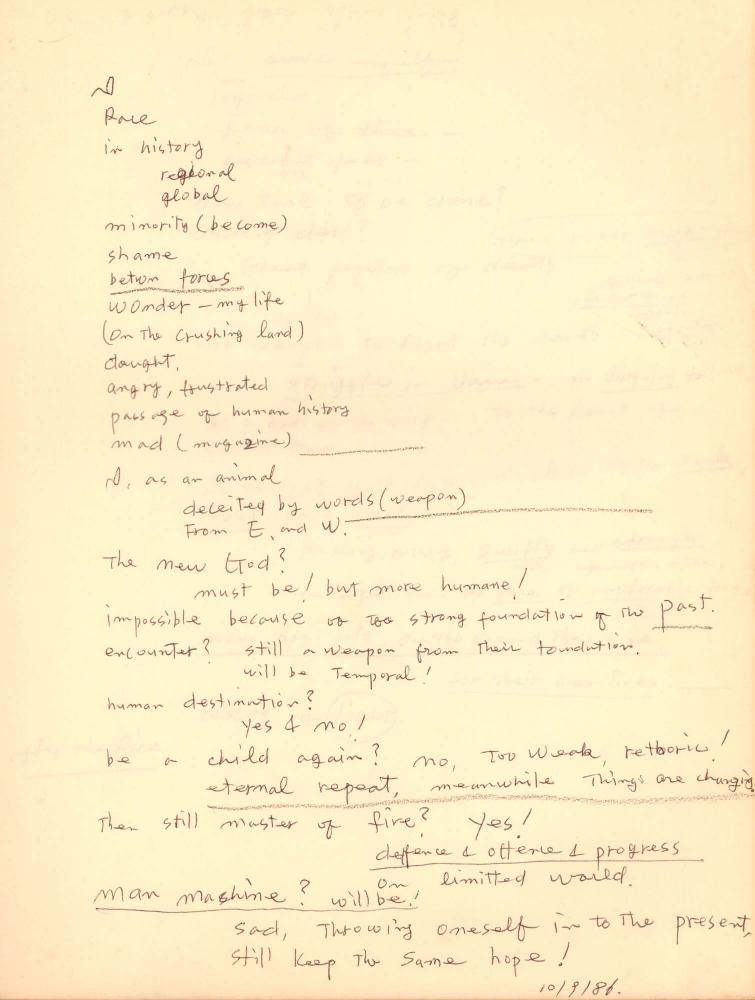 I
Race
in history
regional
global
minority (become)
shame
betwn forces
wonder - my life
(on the crushing land)
daught,
angry, frustrated
passage of human history
mad (magazine)
I, as an animal
deceited by words (weapon)
From E. and W.
The new God?
must be! but more humane!
impossible because of too strong foundation of the past.
encounter? still a weapon from their foundation.
will be Temporal!
human destination?
yes & no!
be a child again? no, too weak, rethoric!
eternal repeat, meanwhile things are changing
Then still master of fire? yes!
deffence & offence & progress
on limitted world.
man mashine? will be!
sad, Throwing oneself in to the present,
still keep the same hope!
10/9/86.